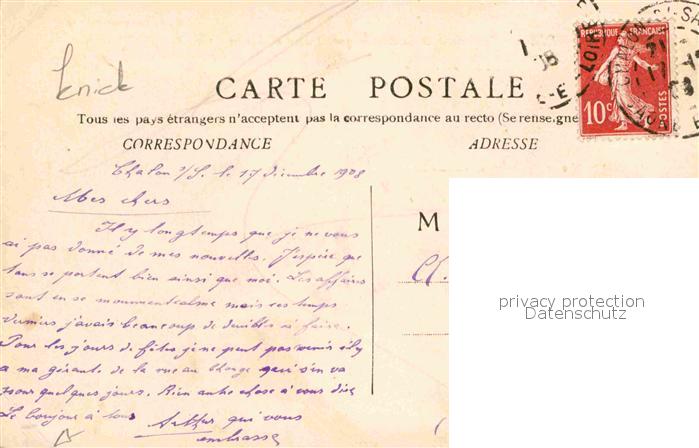 Knick
CARTE POSTALE
Tous les pays étrangers n'acceptent pas la correspondance au recto (Se renseigne
CORRESPONDANCE
ADRESSE
REPUBLIQUE FRANÇAISE
10c
POSTES
Chalon s/S. le 17 décembre 1908
Mes chers
Il y longtemps que je ne vous
ai pas donné de mes nouvelles. J'espère que
tous se portent bien ainsi que moi. Les affaires
sont en se moment calme mais ces temps
derniers j'avais beaucoup de à faire.
Pour les jours de fêtes je ne peut pas venir il y
a ma gérante de la rue au Change qui s'en va
pour quelques jours. Rien autre chose à vous dire
Le bonjour à tous
Arthur qui vous
embrasse
M
privacy protection
Datenschutz